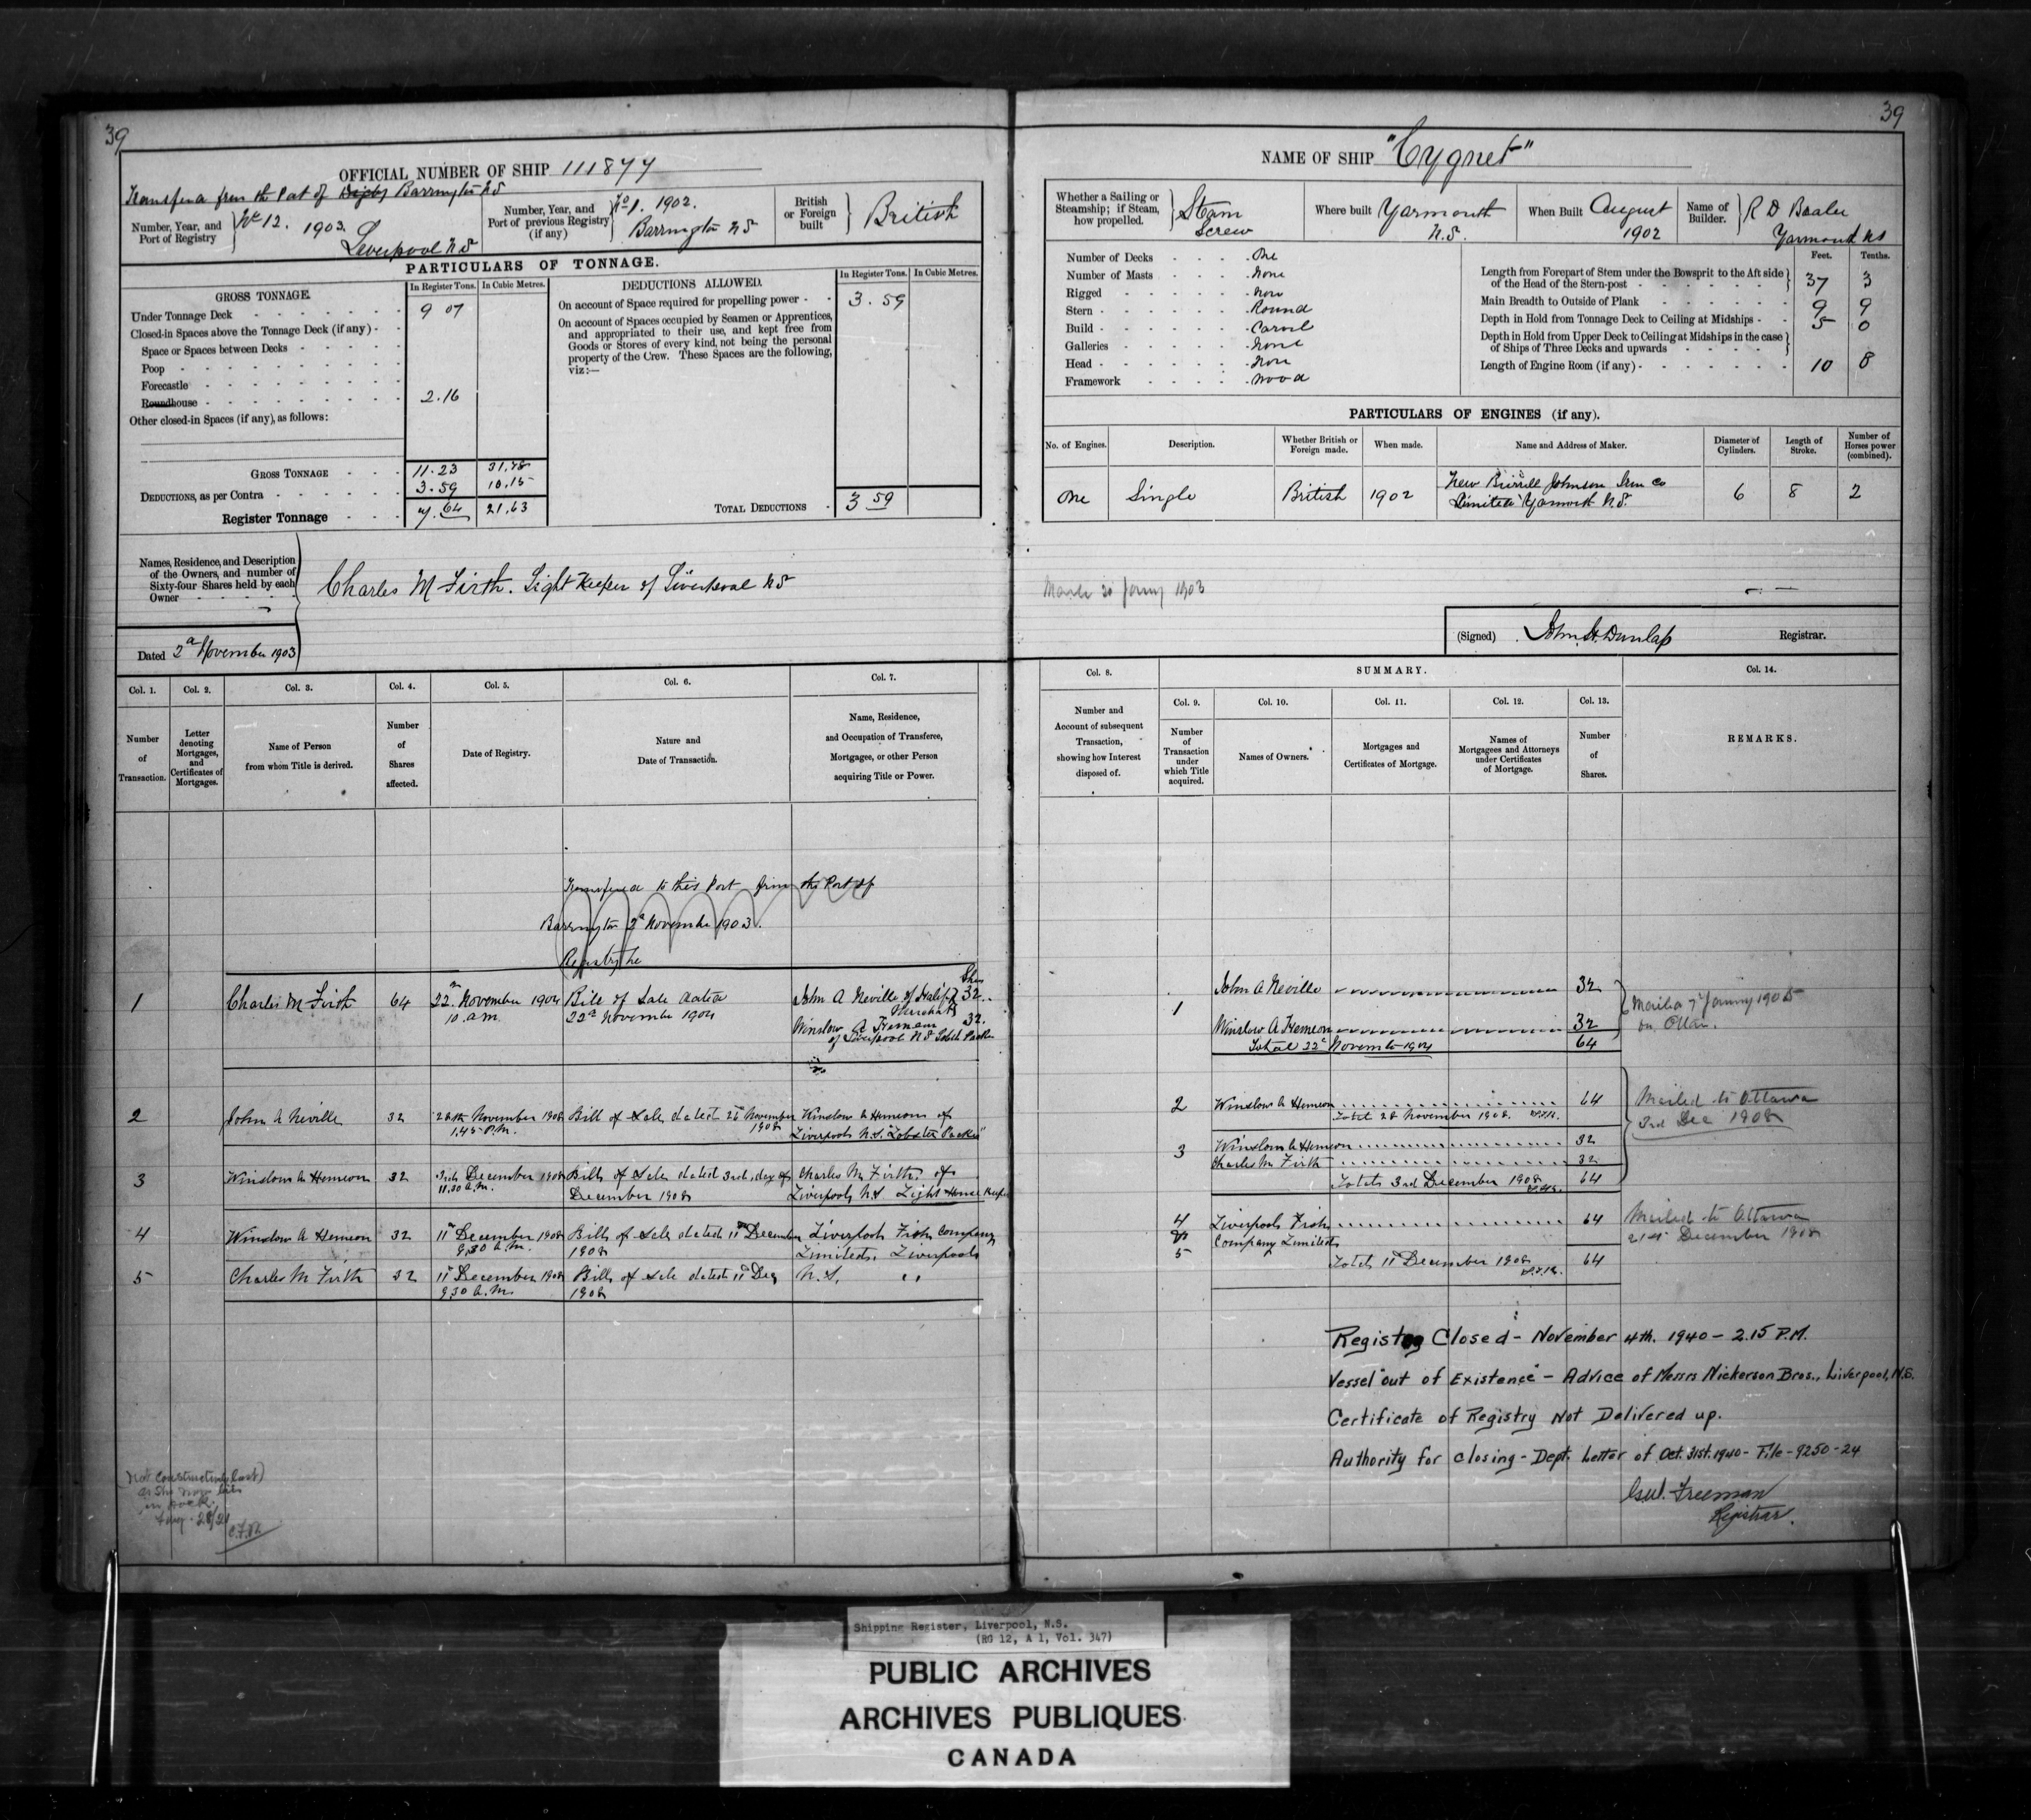 39
OFFICIAL NUMBER OF SHIP 111877
from the Port of Digby Barrington NS
Number, Year, and Port of Registry No 12. 1903. Liverpool NS
Number, Year, and Port of previous Registry (if any) No 1. 1902. Barrington NS
British or Foreign built British
PARTICULARS OF TONNAGE.
GROSS TONNAGE.
In Register Tons.
In Cubic Metres.
Under Tonnage Deck 9 07
Closed-in Spaces above the Tonnage Deck (if any)
Space or Spaces between Decks
Poop
Forecastle
Roundhouse 2.16
Other closed-in Spaces (if any), as follows:
GROSS TONNAGE 11.23 31.78
DEDUCTIONS, as per Contra 3.59 10.15
Register Tonnage 7.64 21.63
DEDUCTIONS ALLOWED.
In Register Tons.
In Cubic Metres.
On account of Space required for propelling power 3.59
On account of Spaces occupied by Seamen or Apprentices,
and appropriated to their use, and kept free from
Goods or Stores of every kind, not being the personal
property of the Crew. These Spaces are the following,
viz:—
TOTAL DEDUCTIONS 3 59
Names, Residence, and Description
of the Owners, and number of
Sixty-four Shares held by each
Owner
Charles M Firth. Light Keeper of Liverpool NS
Dated 2d November 1903
Col. 1. Col. 2. Col. 3. Col. 4. Col. 5. Col. 6. Col. 7.
Number of Transaction.
Letter denoting Mortgages, and Certificates of Mortgages.
Name of Person from whom Title is derived.
Number of Shares affected.
Date of Registry.
Nature and Date of Transaction.
Name, Residence, and Occupation of Transferee, Mortgagee, or other Person acquiring Title or Power.
to this Port from the Port of
Barrington 2d November 1903.
1 Charles M Firth 64 22d November 1904 Bill of Sale dated John A Neville of Halifax 32
10 am. 22d November 1904 Merchant
Winslow A Hemeon 32.
of Liverpool NS
2 John A Neville 32 28th November 1908 Bill of Sale dated November Winslow A Hemeon of
1.45 P.M. 1908 Liverpool N.S. "Lobster Packer"
3 Winslow A Hemeon 32 3rd December 1908 Bill of Sale dated 3rd day of Charles M Firth of
11.30 A.M. December 1908 Liverpool N.S Light House Keeper
4 Winslow A Hemeon 32 11th December 1908 Bill of Sale dated 11th December Liverpool Fish Company
9.30 A.M. 1908 Limited, Liverpool
5 Charles M Firth 32 11th December 1908 Bill of Sale dated 11th Dec N.S. "
9.30 A.M. 1908
(not
as she now lies
in dock.
Aug. 28/21
39
NAME OF SHIP "Cygnet"
Whether a Sailing or Steamship; if Steam, how propelled. Steam Screw
Where built Yarmouth N.S.
When Built August 1902
Name of Builder. R D
Yarmouth NS
Number of Decks One
Number of Masts None
Rigged None
Stern Round
Build Carvel
Galleries None
Head None
Framework Wood
Feet. Tenths.
Length from Forepart of Stem under the Bowsprit to the Aft side
of the Head of the Stern-post 37 3
Main Breadth to Outside of Plank 9 9
Depth in Hold from Tonnage Deck to Ceiling at Midships 5 0
Depth in Hold from Upper Deck to Ceiling at Midships in the case
of Ships of Three Decks and upwards
Length of Engine Room (if any) 10 8
PARTICULARS OF ENGINES (if any).
No. of Engines.
Description.
Whether British or Foreign made.
When made.
Name and Address of Maker.
Diameter of Cylinders.
Length of Stroke.
Number of Horses power (combined).
One Single British 1902 New Burrell Johnson Iron Co 6 8 2
Limited Yarmouth N.S.
1903
(Signed) John H. Dunlap Registrar.
Col. 8.
SUMMARY.
Col. 9. Col. 10. Col. 11. Col. 12. Col. 13. Col. 14.
Number and Account of subsequent Transaction, showing how Interest disposed of.
Number of Transaction under which Title acquired.
Names of Owners.
Mortgages and Certificates of Mortgage.
Names of Mortgagees and Attorneys under Certificates of Mortgage.
Number of Shares.
REMARKS.
1 John A Neville 32
Winslow A Hemeon 32
Total 22d November 1904 64
Mailed 7 January 1905
2 Winslow A Hemeon 64
Total 28 November 1908
3 Winslow A Hemeon 32
Charles M Firth 32
Total 3rd December 1908 64
Mailed to Ottawa
3rd Dec 1908
4 & 5 Liverpool Fish 64
Company Limited
Total 11th December 1908 64
Mailed to Ottawa
21st December 1908
Registry Closed - November 4th. 1940 - 2.15 P.M.
Vessel "out of Existence" - Advice of Messrs Nickerson Bros., Liverpool, N.S.
Certificate of Registry Not Delivered up.
Authority for closing - Dept. Letter of Oct. 31st. 1940 - File - 9250-24
Freeman
Registrar.
Shipping Register, Liverpool, N.S.
(RG 12, A 1, Vol. 347)
PUBLIC ARCHIVES
ARCHIVES PUBLIQUES
CANADA